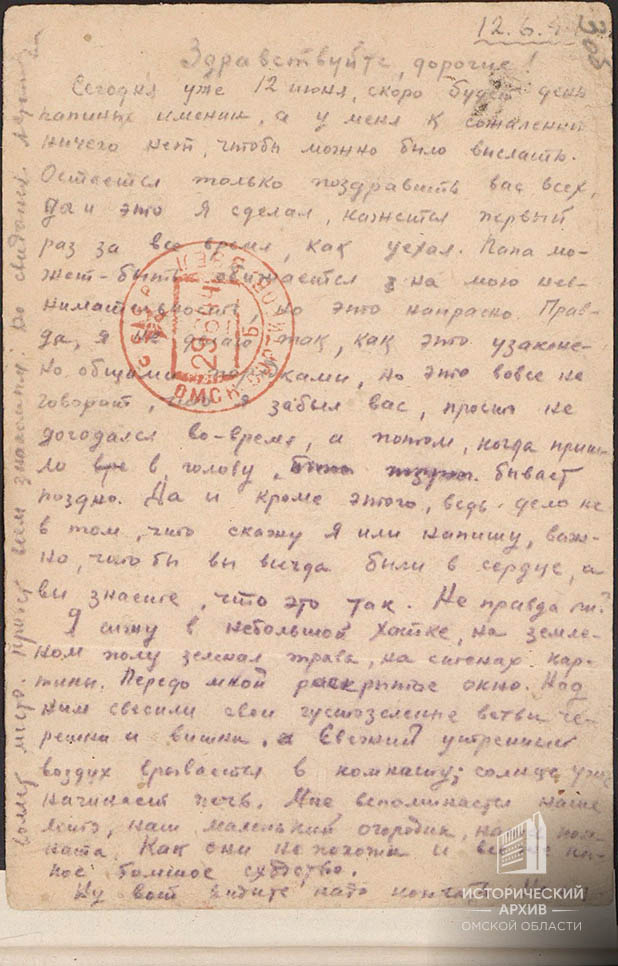 12.6.4
308
Здравствуйте, дорогие!
Сегодня уже 12 июня, скоро будет день
папиных именин, а у меня к сожалению
ничего нет, чтобы можно было выслать.
Остается только поздравить вас всех,
да и это я сделал, кажется первый
раз за все время, как уехал. Папа мо-
жет-быть обижается на мою нев-
нимательность но это напрасно. Прав-
да, я не делаю так, как это узаконе-
но общими, но это вовсе не
говорит, что я забыл вас, просто не
догадался во-время, а потом, когда приш-
ло в голову, бывает
поздно. Да и кроме этого, ведь дело не
в том, что скажу я или напишу, важ-
но, что бы вы всегда были в сердце, а
вы знаете, что это так. Не правда ли?
Я сижу в небольшой хатке, на земле-
ном полу зеленая трава, на стенах кар-
тины. Передо мной раскрытое окно. Над
ним свесили свои густозеленые ветви че-
решни и вишни. Свежий утренний
воздух врывается в комнату; солнце уже
начинает печь. Мне вспоминается наше
лето, наш маленький огородик, ком-
ната. Как они не похожи и
большое сходство.
Ну вот видите надо кончать.
место. Привет всем знакомым. До свидания.
СССР
29 6 4
ОМСК
ИСТОРИЧЕСКИЙ
АРХИВ
ОМСКОЙ ОБЛАСТИ